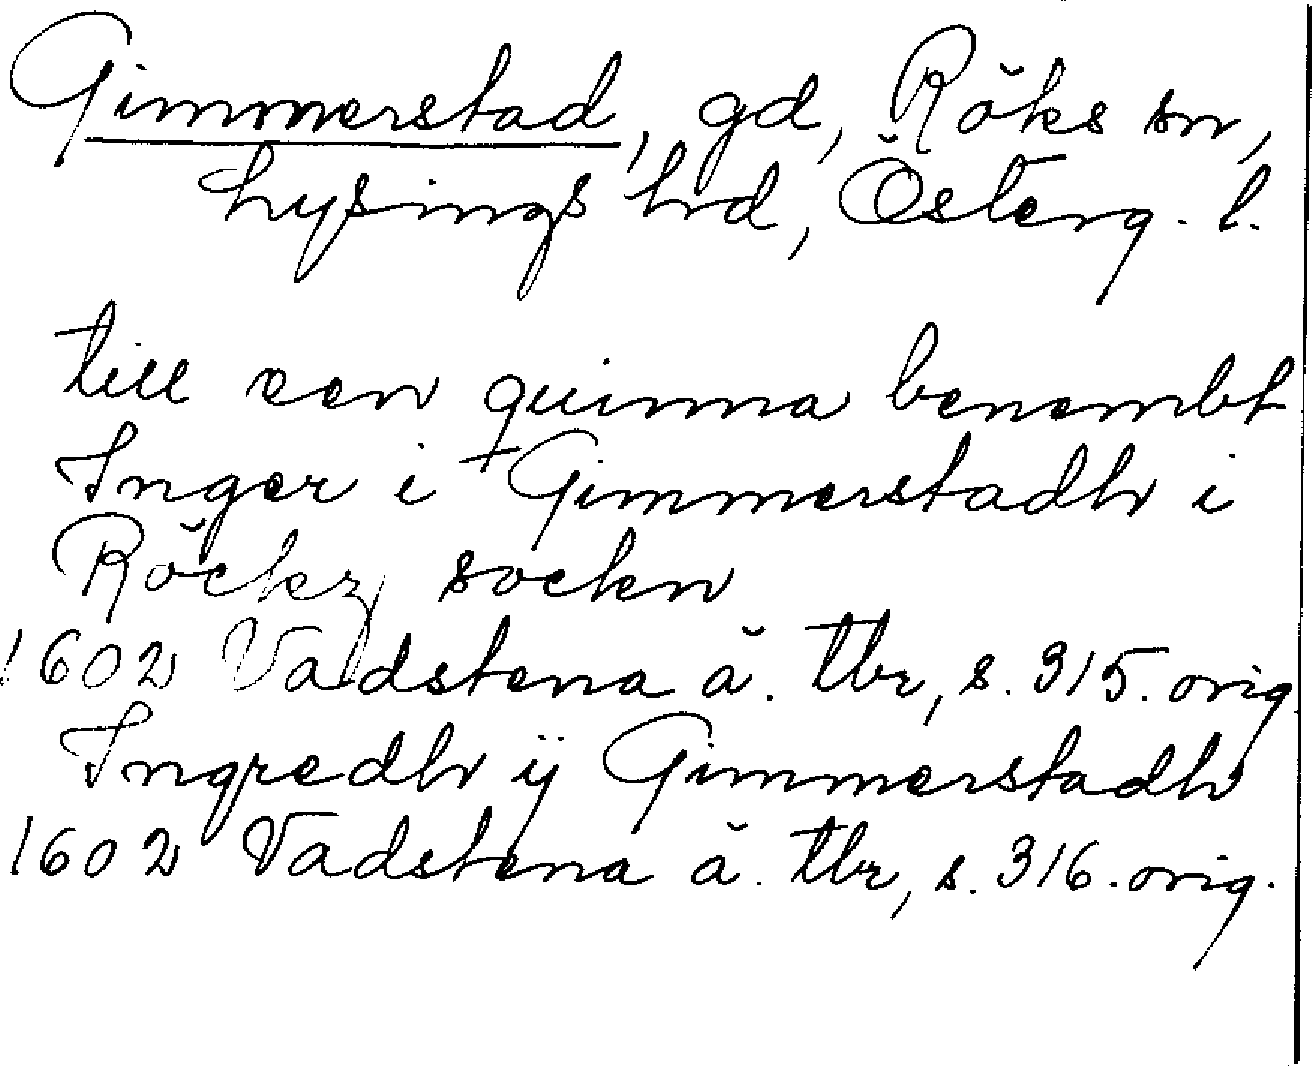 Gimmerstad, gd, Röks sn,
Lysings hrd, Österg. l.
till een quinna benembt
Inger i Gimmerstadh i
Röckz sockn
1602 Vadstena ä. tbr, s. 315. orig
Ingredh ij Gimmerstadh
1602 Vadstena ä. tbr, s. 316. orig.